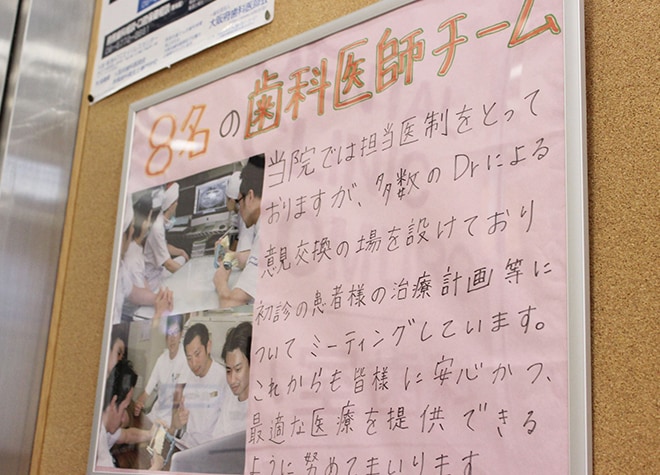 大阪府歯科医師会
8名の歯科医師チーム
当院では担当医制をとって
おりますが、多数のDrによる
意見交換の場を設けており
初診の患者様の治療計画等に
ついてミーティングしています。
これからも皆様に安心かつ、
最適な医療を提供できる
ように努めてまいります